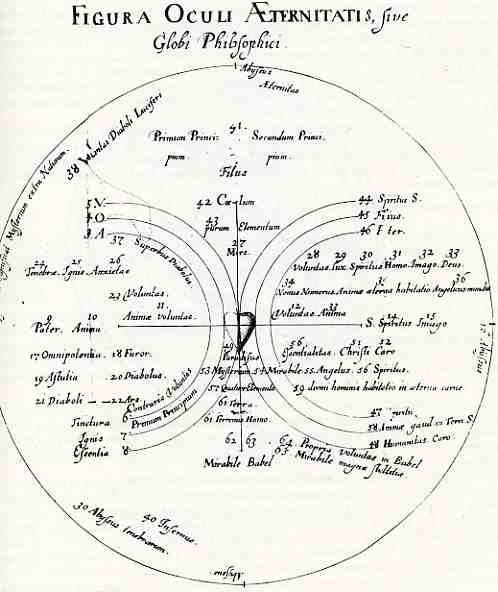 FIGURA OCULI ÆTERNITATIS, sive
Globi Philosophici.
Abyssus
Æternitas
38 Voluntas Diaboli Luciferi
Mysterium extra Naturam
41
Primum Princi- Secundum Princi-
pium. pium.
Filius
42 Cœlum
43
purum Elementum
27
Mors.
5 V
4 O
3 A
37 Superbus Diabolus
44 Spiritus S.
45 Filius.
46 Pater.
24 25 26
Tenebræ. Ignis Anxietas
28 29 30 31 32 33
Voluntas lux Spiritus Homo. Imago. Deus.
34 35 36
Numerus Animæ æternæ habitatio Angelicus mundus
23 Voluntas.
9 10 11
Pater. Anima Animæ voluntas.
12 13
Voluntas Anima
14 15
S. Spiritus Imago
17 Omnipotentia. 18 Furor.
19 Astutia 20 Diabolus.
21 Diaboli 22 Ars.
49
Paradisus
50 51 52
Essentialitas. Christi Caro
53 Mysterium 54 Mirabile 55 Angelus. 56 Spiritus.
57 Quatuor Elementa
59 hominis habitatio in æterna carne
Contraria Voluntas
Primum Principium
61 Terra
61 Terrenus Homo.
62 63
Mirabile Babel
64 Propria Voluntas in Babel
65 Mirabile magnæ stultitiæ
47
58 Animæ gaud
48 Humanitas Caro
Tinctura 6
Ignis 7
Essentia 8
39 Abyssus tenebrarum.
40 Infernus.
Abyssus
Abyssus